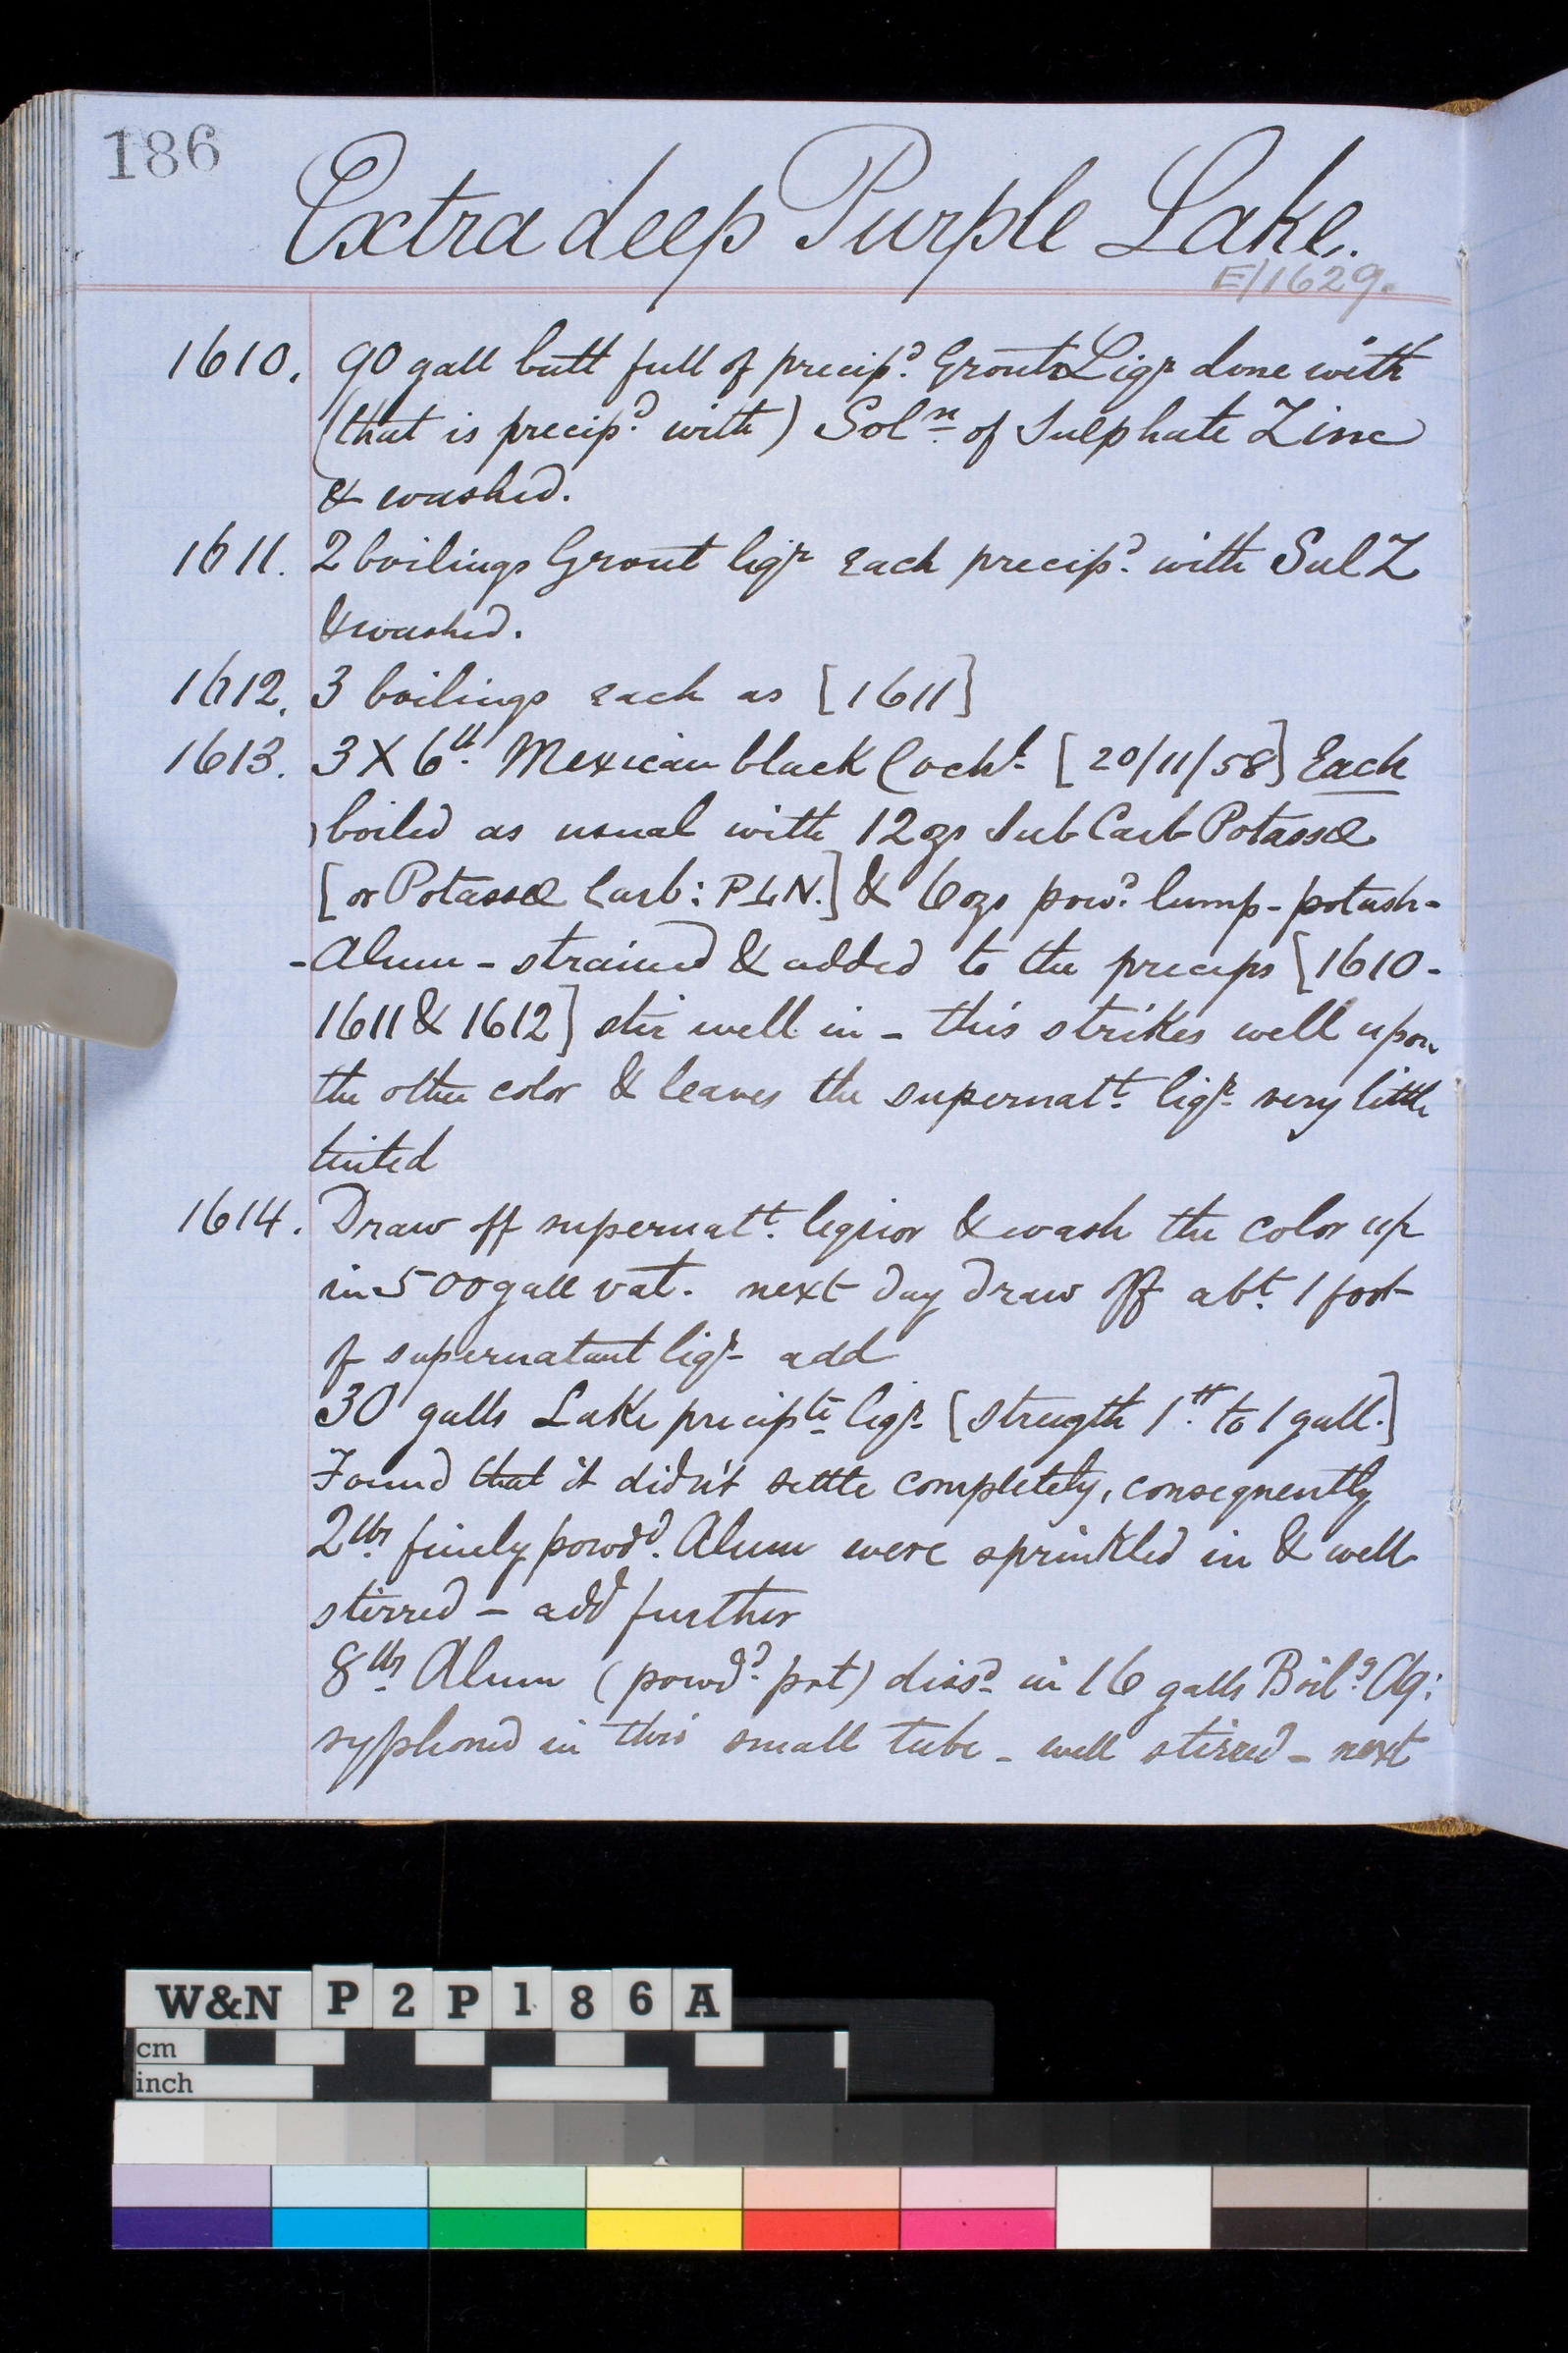 186
Extra deep Purple Lake.
E/1629.
1610. 90 gall butt full of precip.d Grouts Liqr done with
(that is precip.d with) Sol.n of Sulphate Zinc
& washed.
1611. 2 boilings Grout liqr each precip.d with Sul Z
& washed.
1612. 3 boilings each as [1611]
1613. 3 X 6 lb. Mexican black Coch.l [20/11/58] Each
boiled as usual with 12 ozs Sub Carb Potassæ
[or Potassæ Carb: P.L.N.] & 6 ozs pow.d lump-potash-
-Alum - strained & added to the precips [1610-
1611 & 1612] stir well in - this strikes well upon
the other color & leaves the supernat.t liqr. very little
tinted
1614. Draw off supernat.t liquor & wash the color up
in 500 gall vat. next day draw off ab.t 1 foot
of supernatant liqr. add
30 galls Lake precip.te liqr. [strength 1 lb. to 1 gall.]
Found that it didn't settle completely, consequently
2 lbs. finely powd.d Alum were sprinkled in & well
stirred - add further
8 lbs. Alum (powd.d pot) diss.d in 16 galls Boil.g Aq:
syphoned in thro' small tube - well stirred - next
W&N P2P186A
cm
inch